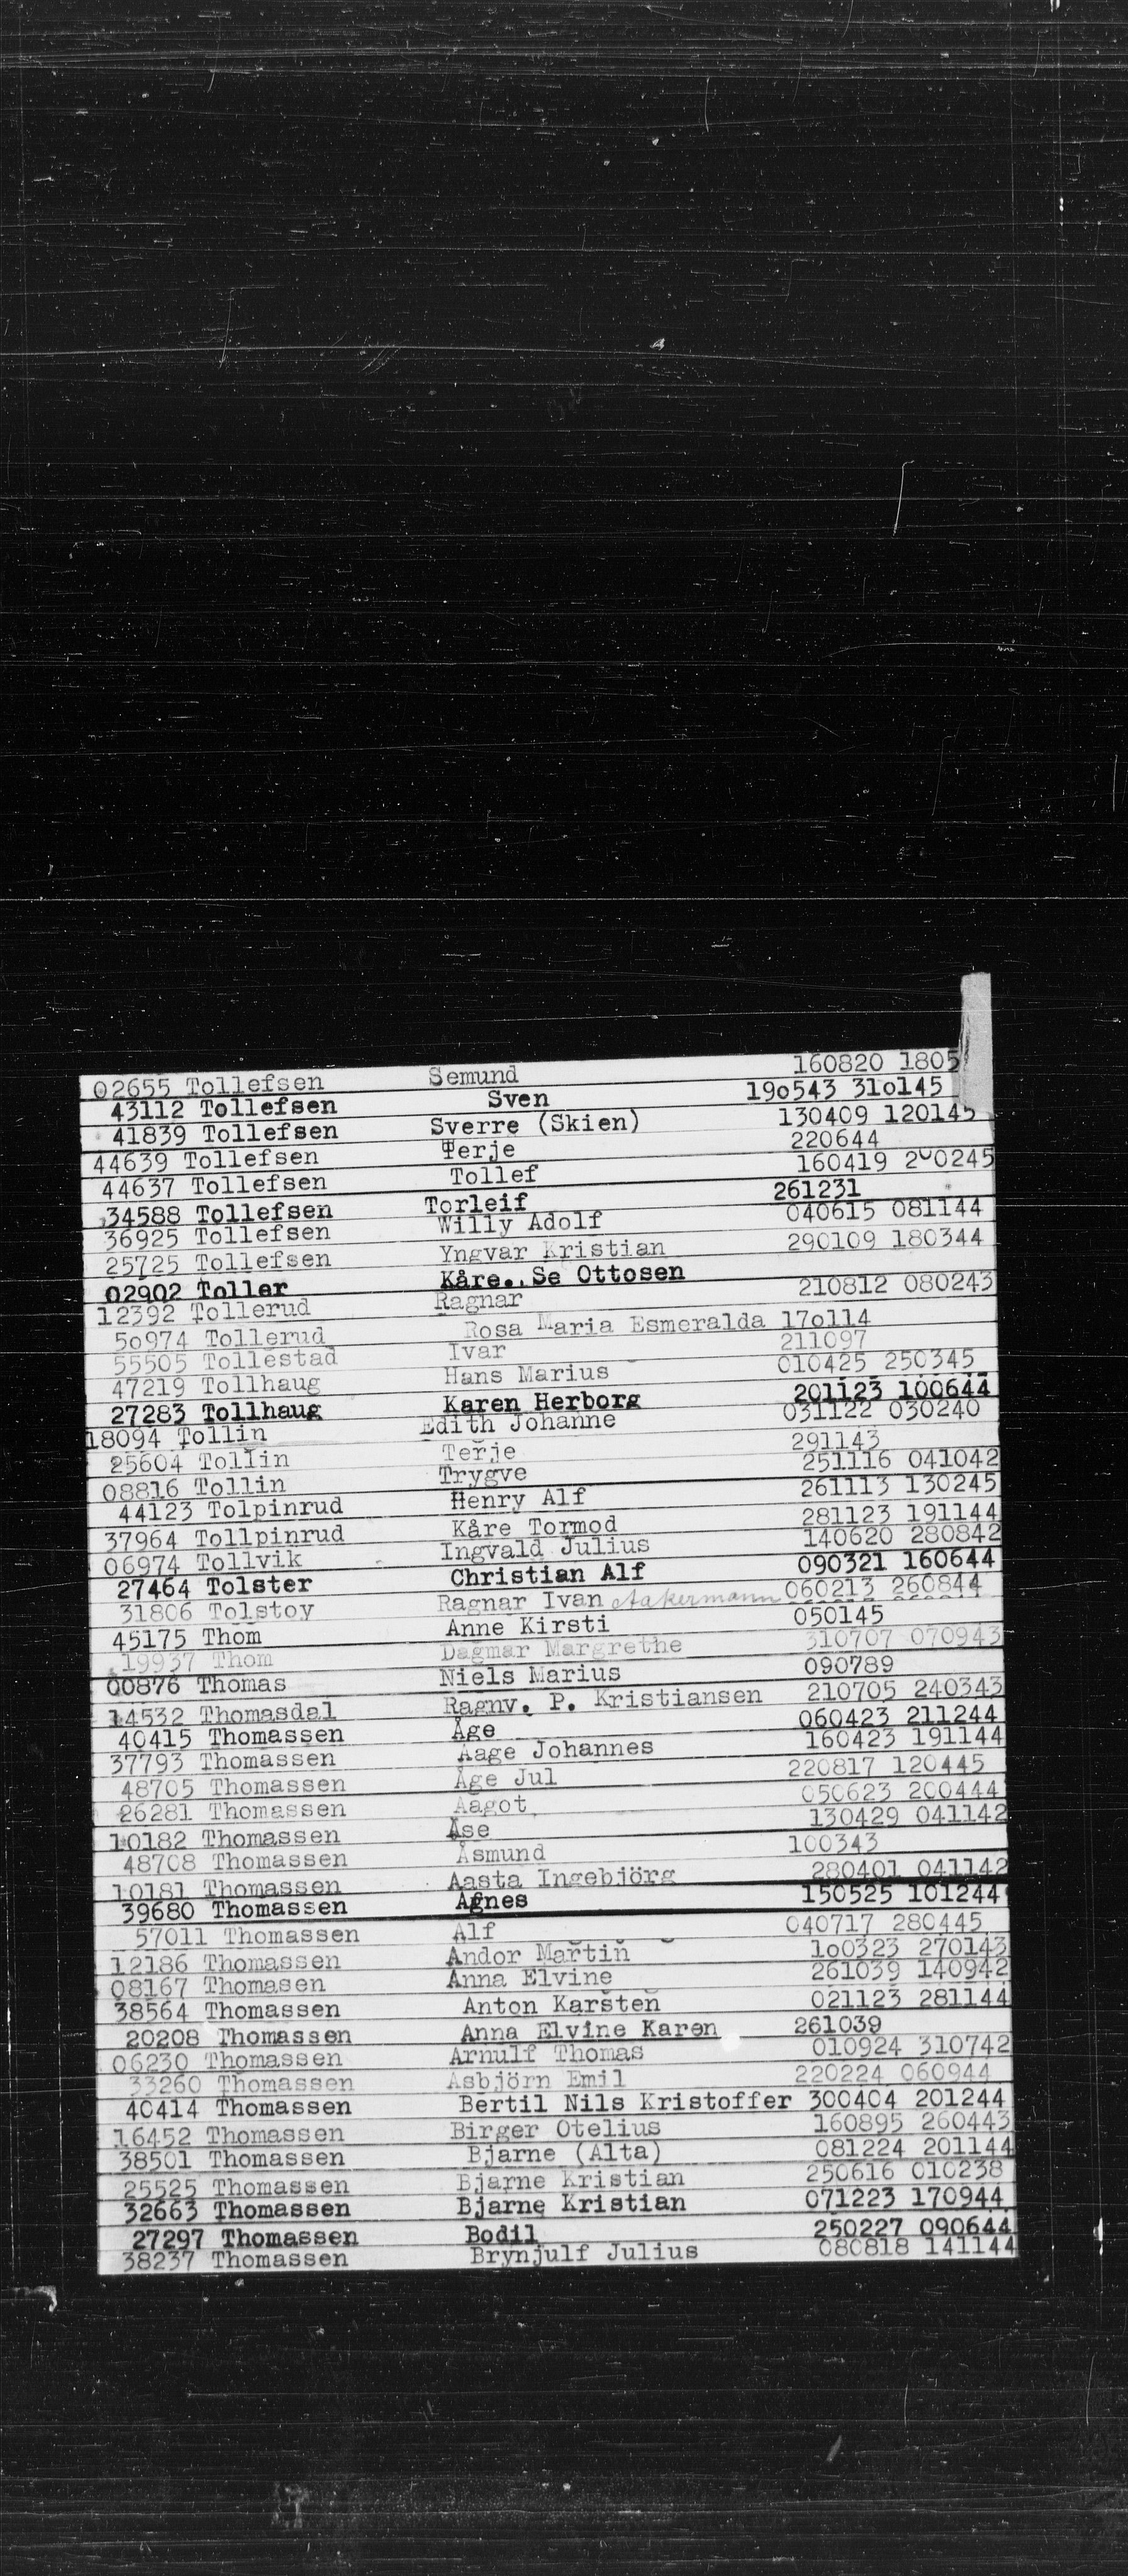 02655 Tollefsen Semund 160820 1805
43112 Tollefsen Sven 190543 310145
41839 Tollefsen Sverre (Skien) 130409 120145
44639 Tollefsen Terje 220644
44637 Tollefsen Tollef 160419 200245
34588 Tollefsen Torleif 261231
36925 Tollefsen Willy Adolf 040615 081144
25725 Tollefsen Yngvar Kristian 290109 180344
02902 Toller Kåre.. Se Ottosen
12392 Tollerud Ragnar 210812 080243
50974 Tollerud Rosa Maria Esmeralda 170114
55505 Tollestad Ivar 211097
47219 Tollhaug Hans Marius 010425 250345
27283 Tollhaug Karen Herborg 201123 100644
18094 Tollin Edith Johanne 031122 030240
25604 Tollin Terje 291143
08816 Tollin Trygve 251116 041042
44123 Tolpinrud Henry Alf 261113 130245
37964 Tollpinrud Kåre Tormod 281123 191144
06974 Tollvik Ingvald Julius 140620 280842
27464 Tolster Christian Alf 090321 160644
31806 Tolstoy Ragnar Ivan Aakermann 060213 260844
45175 Thom Anne Kirsti 050145
19937 Thom Dagmar Margrethe 310707 070943
00876 Thomas Niels Marius 090789
14532 Thomasdal Ragnv. P. Kristiansen 210705 240343
40415 Thomassen Åge 060423 211244
37793 Thomassen Aage Johannes 160423 191144
48705 Thomassen Åge Jul 220817 120445
26281 Thomassen Aagot 050623 200444
10182 Thomassen Åse 130429 041142
48708 Thomassen Åsmund 100343
10181 Thomassen Aasta Ingebjörg 280401 041142
39680 Thomassen Agnes 150525 101244
57011 Thomassen Alf 040717 280445
12186 Thomassen Andor Martin 100323 270143
08167 Thomasen Anna Elvine 261039 140942
38564 Thomassen Anton Karsten 021123 281144
20208 Thomassen Anna Elvine Karen 261039
06230 Thomassen Arnulf Thomas 010924 310742
33260 Thomassen Asbjörn Emil 220224 060944
40414 Thomassen Bertil Nils Kristoffer 300404 201244
16452 Thomassen Birger Otelius 160895 260443
38501 Thomassen Bjarne (Alta) 081224 201144
25525 Thomassen Bjarne Kristian 250616 010238
32663 Thomassen Bjarne Kristian 071223 170944
27297 Thomassen Bodil 250227 090644
38237 Thomassen Brynjulf Julius 080818 141144